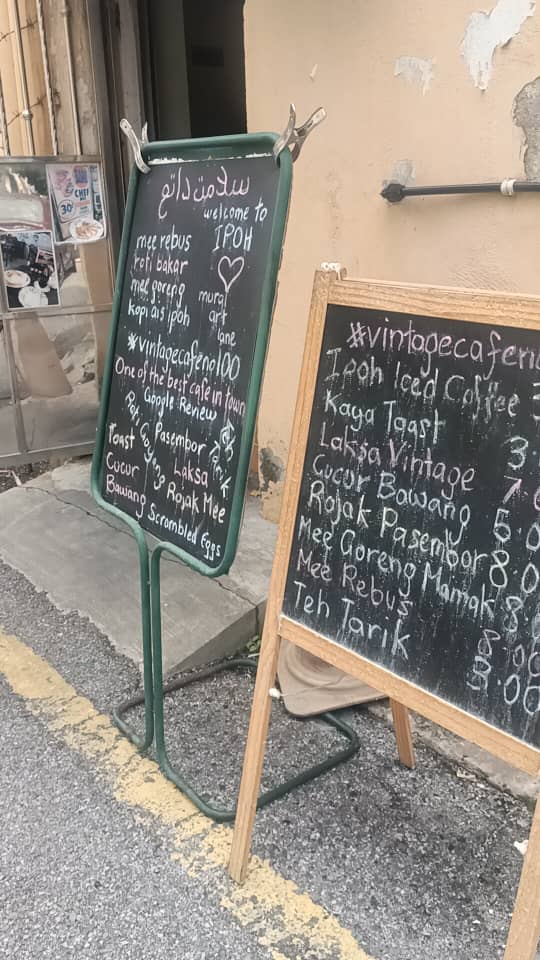 سلامت داتڠ
welcome to
IPOH
mee rebus
roti bakar
mee goreng
kopi ais ipoh
mural
art
lane
#vintagecafeno100
One of the best cafe in town
Google Review
Roti Goyang
Pasembor
Teh Tarik
Toast
Laksa
Cucur
Bawang
Rojak Mee
Scrambled Eggs
#vintagecafeno
Ipoh Iced Coffee 3
Kaya Toast 3.
Laksa Vintage 7.0
Cucur Bawang 5.0
Rojak Pasembor 8.0
Mee Goreng Mamak 8.
Mee Rebus 8.00
Teh Tarik 3.00
CHEF
30